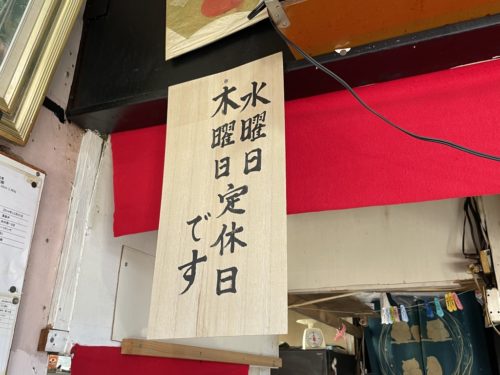 水曜日
木曜日定休日
です